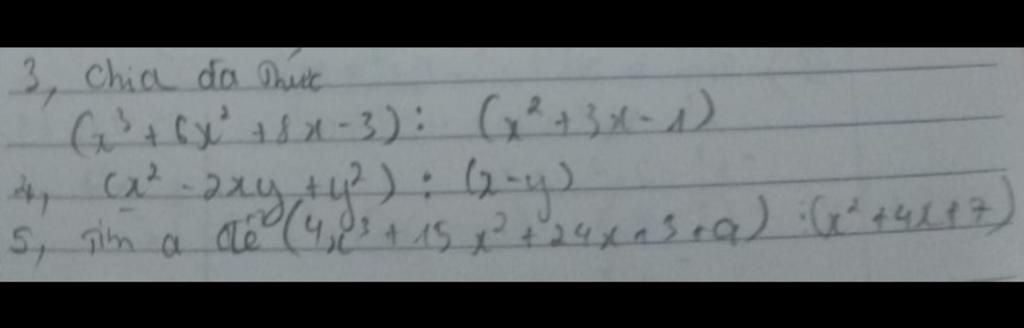 3, Chia đa thức
(x³ + 6x² + 8x - 3) : (x² + 3x - 1)
4, (x² - 2xy + y²) : (x - y)
5, Tìm a để (4x³ + 15x² + 24x + 3 + a) : (x² + 4x + 7)